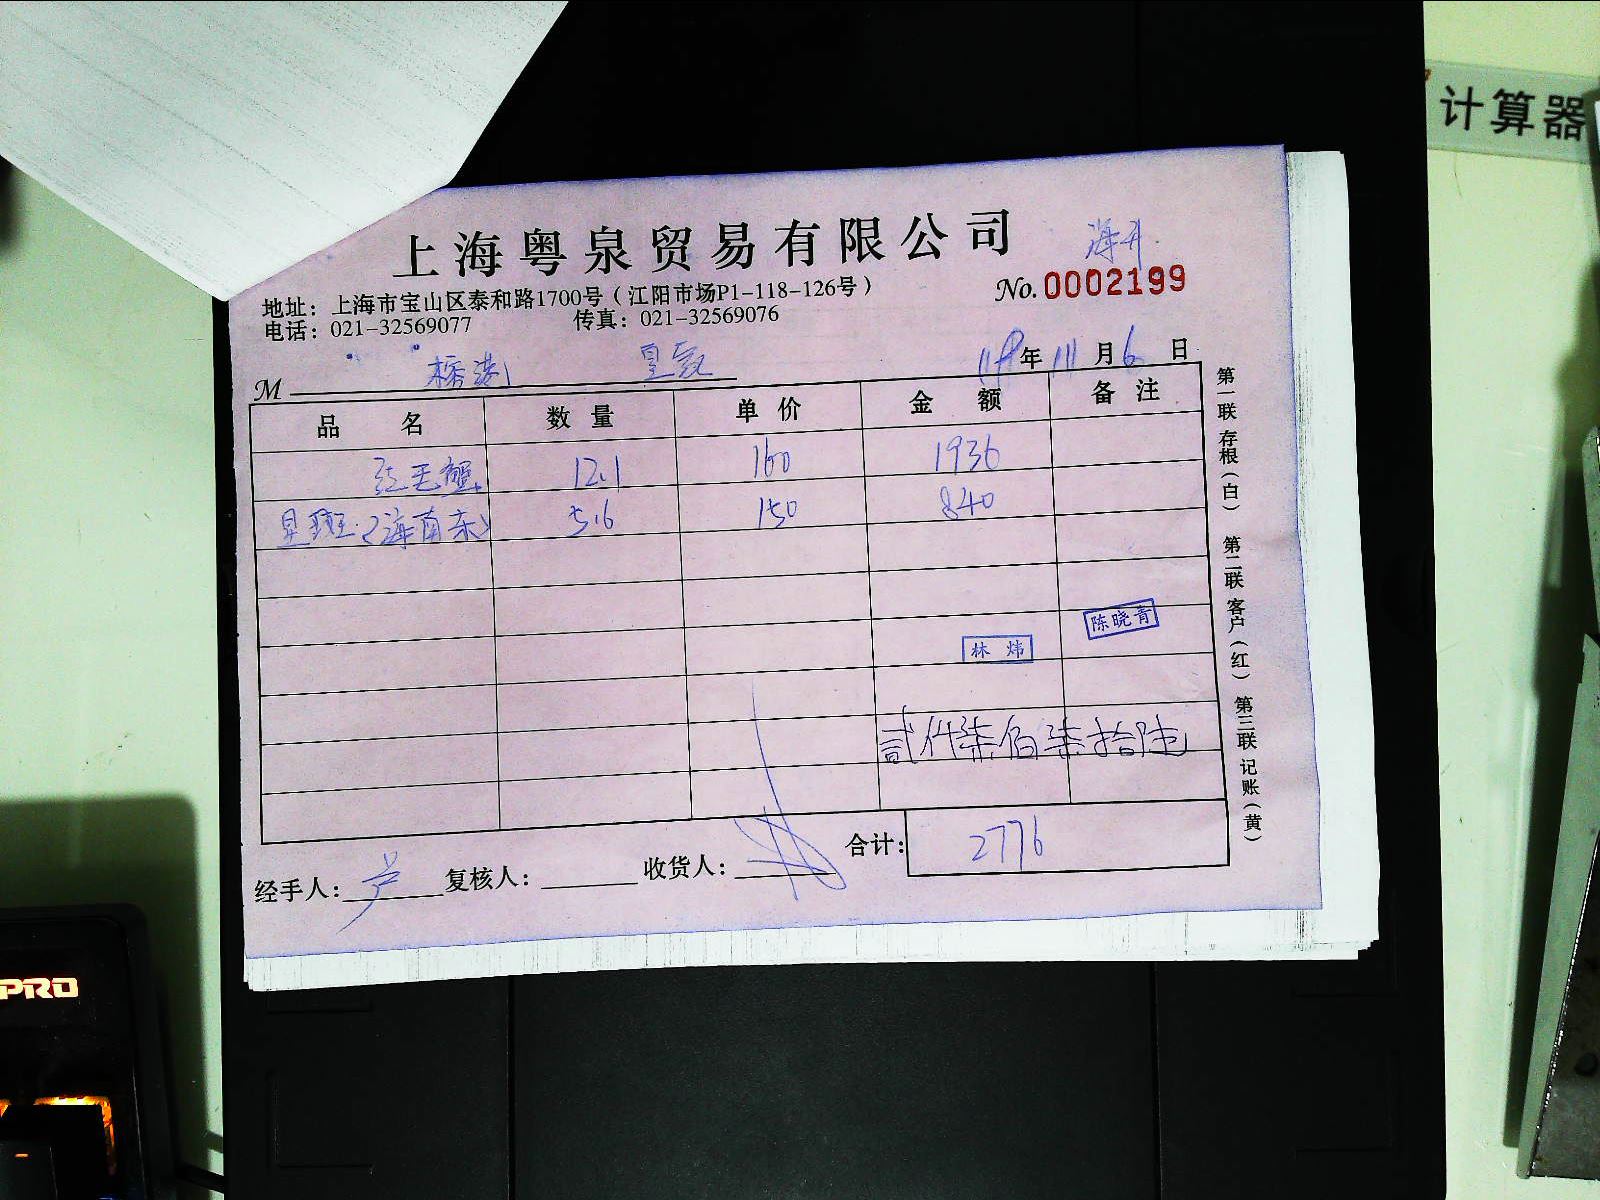 计算器
上海粤泉贸易有限公司
No. 0002199
地址：上海市宝山区泰和路1700号（江阳市场P1-118-126号）
电话：021-32569077 传真：021-32569076
M
年 11 月 6 日
品名 数量 单价 金额 备注
红毛蟹 12.1 160 1936
星斑（海南东） 5.6 150 840
陈晓青
林炜
贰仟柒佰柒拾陆
合计： 2776
经手人： 复核人： 收货人：
第一联 存根（白） 第二联 客户（红） 第三联 记账（黄）
PRO